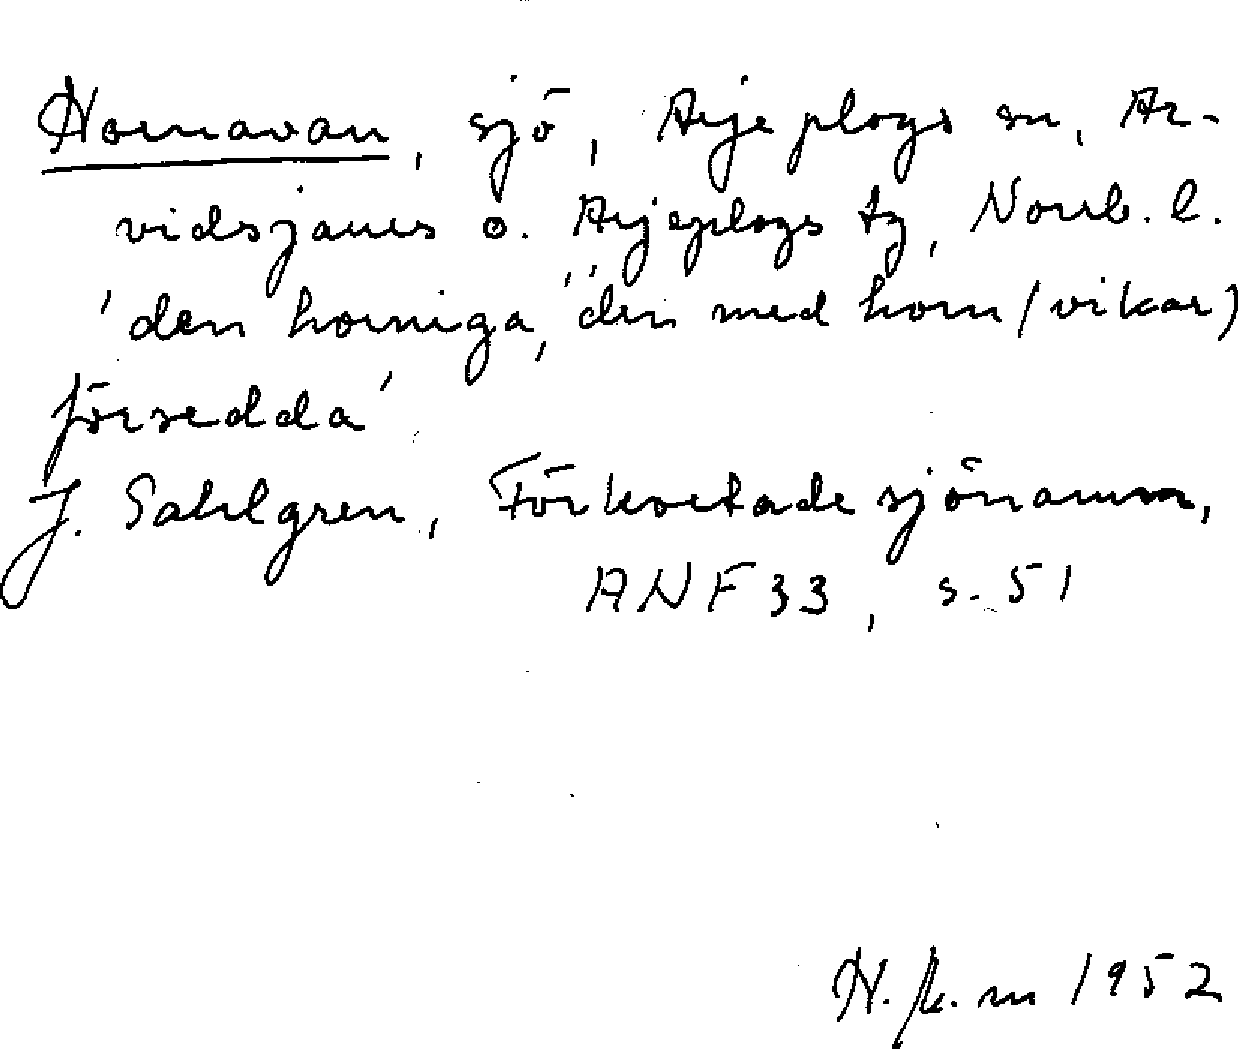 Hornavan, sjö, Arjeplogs sn, Ar-
vidsjaurs o. Arjeplogs tg, Norrb. l.
'den horniga', 'den med horn (vikar)
försedda'
J. Sahlgren, Förkortade sjönamn,
ANF 33, s. 51
H. k. m 1952